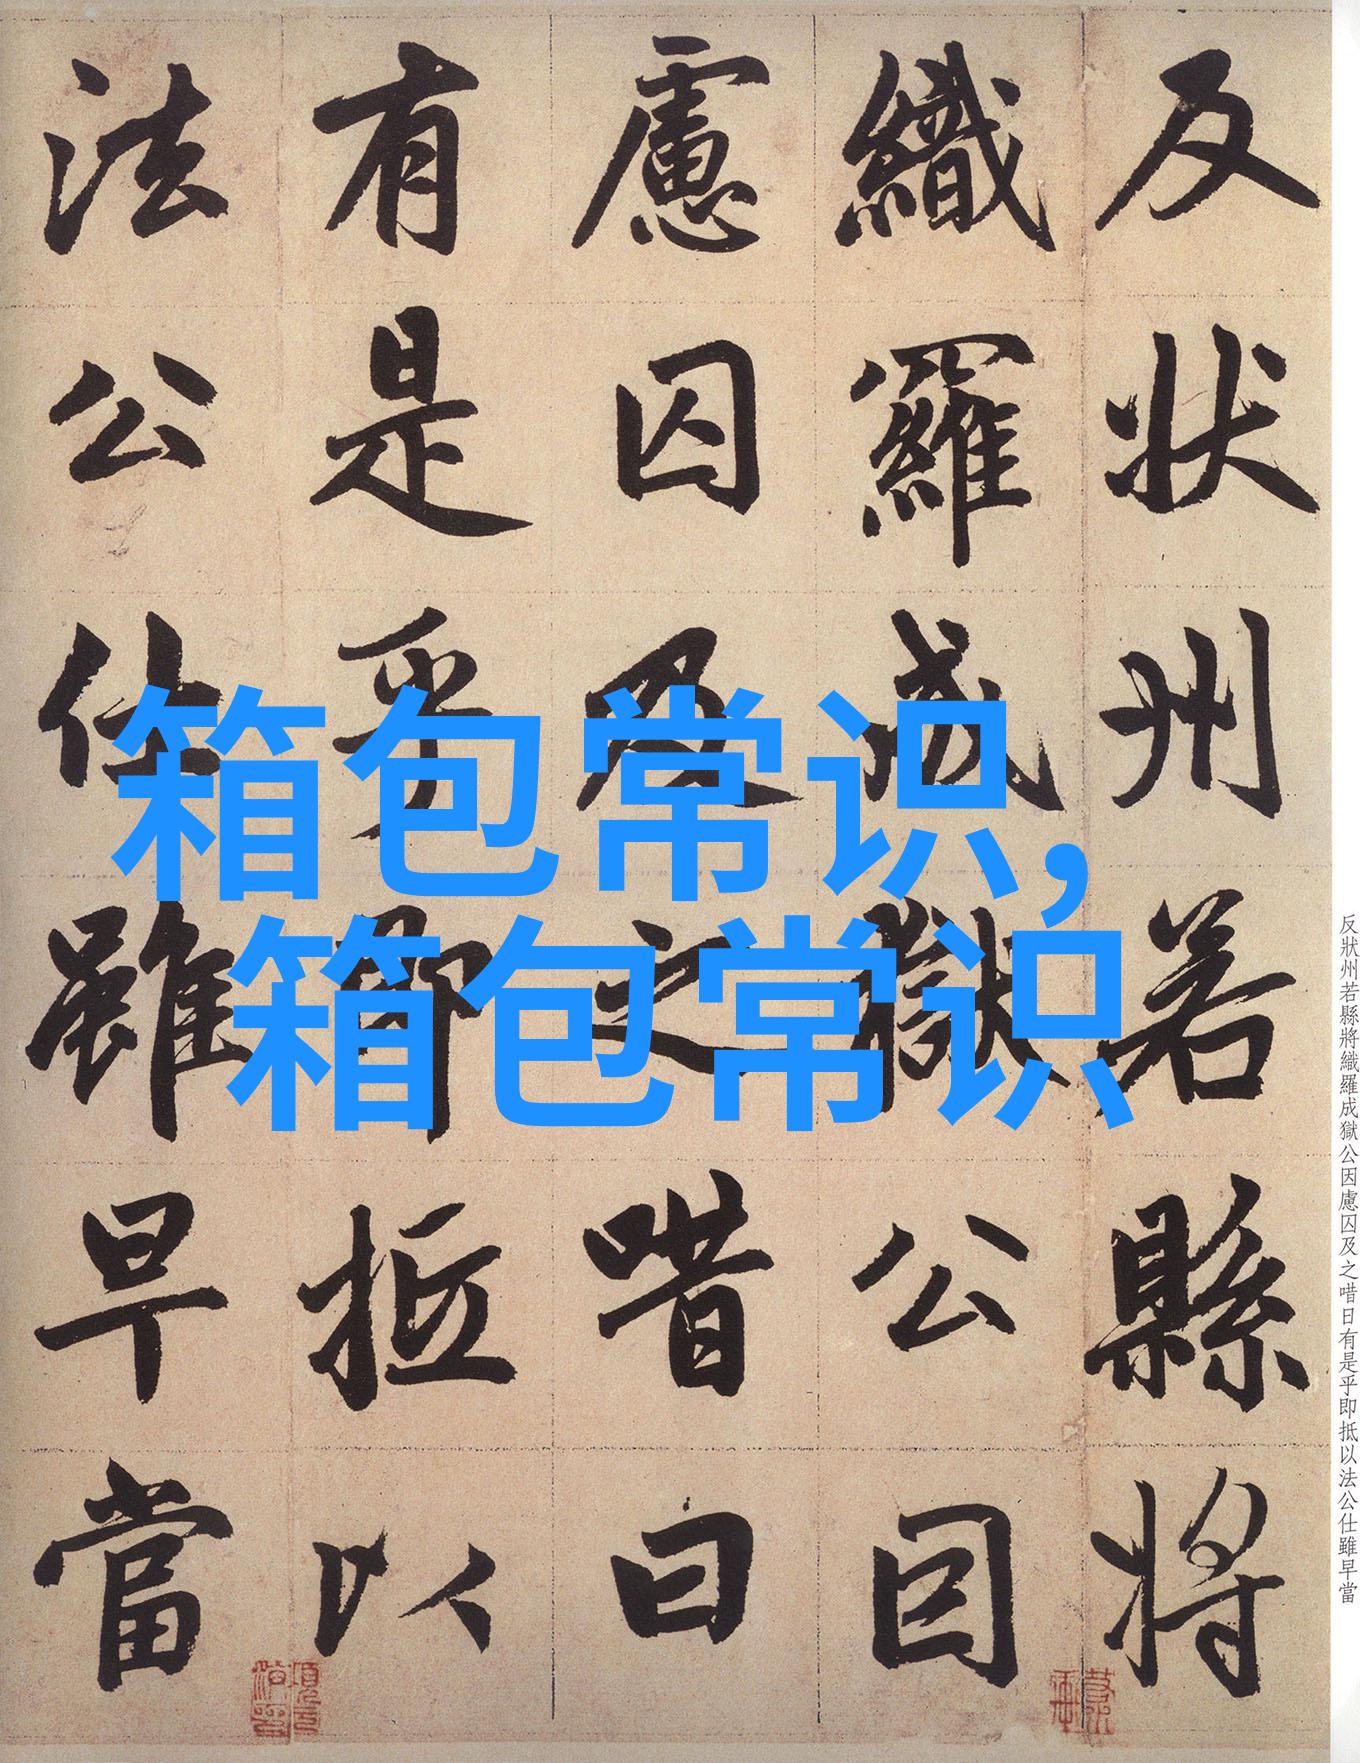 反状州若縣將
織羅成獄公因
慮囚及之唶曰
有是乎即抵以
法公仕雖早當
箱包常识,
箱包常识
反狀州若縣將織羅成獄公因慮囚及之唶日有是乎即抵以法公仕雖早當